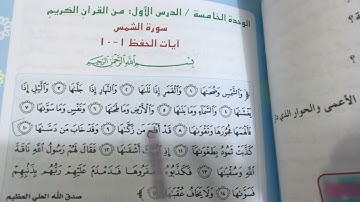 الوحدة الخامسة / الدرس الأول: من القرآن الكريم
سورة الشمس
آيات الحفظ ١-١٠
بسم الله الرحمن الرحيم
﴿ وَالشَّمْسِ وَضُحَاهَا ١ وَالْقَمَرِ إِذَا تَلَاهَا ٢ وَالنَّهَارِ إِذَا جَلَّاهَا ٣ وَاللَّيْلِ إِذَا
يَغْشَاهَا ٤ وَالسَّمَاءِ وَمَا بَنَاهَا ٥ وَالْأَرْضِ وَمَا طَحَاهَا ٦ وَنَفْسٍ وَمَا سَوَّاهَا ٧
فَأَلْهَمَهَا فُجُورَهَا وَتَقْوَاهَا ٨ قَدْ أَفْلَحَ مَن زَكَّاهَا ٩ وَقَدْ خَابَ مَن دَسَّاهَا ١٠
كَذَّبَتْ ثَمُودُ بِطَغْوَاهَا ١١ إِذِ انبَعَثَ أَشْقَاهَا ١٢ فَقَالَ لَهُمْ رَسُولُ اللَّهِ نَاقَةَ
اللَّهِ وَسُقْيَاهَا ١٣ فَكَذَّبُوهُ فَعَقَرُوهَا فَدَمْدَمَ عَلَيْهِمْ رَبُّهُم بِذَنبِهِمْ
فَسَوَّاهَا ١٤ وَلَا يَخَافُ عُقْبَاهَا ١٥ ﴾
صدق الله العلي العظيم
الأعمى والحوار الذي